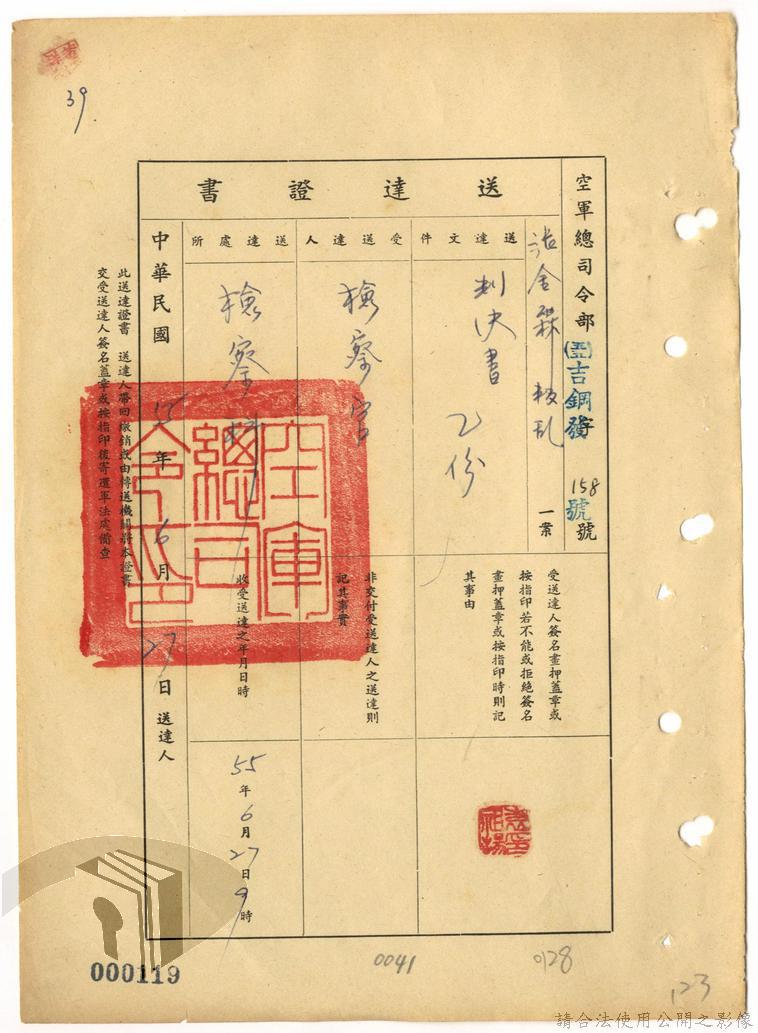 39
空軍總司令部
吉鋼發
158
號
號
送達證書
張金霖 叛乱
一案
送達文件
判決書
乙份
受送達人
檢察官
送達處所
檢察科
受送達人簽名畫押蓋章或
按指印若不能或拒絕簽名
畫押蓋章或按指印時則記
其事由
非交付受送達人之送達則
記其事實
收受送達之年月日時
55年6月27日9時
中華民國55年6月27日送達人
空軍總司令印
此送達證書送達人帶回繳銷或由轉送機關將本證書
交受送達人簽名蓋章或按指印後寄還軍法處備查
000119
0041
0128
123
請合法使用公開之影像